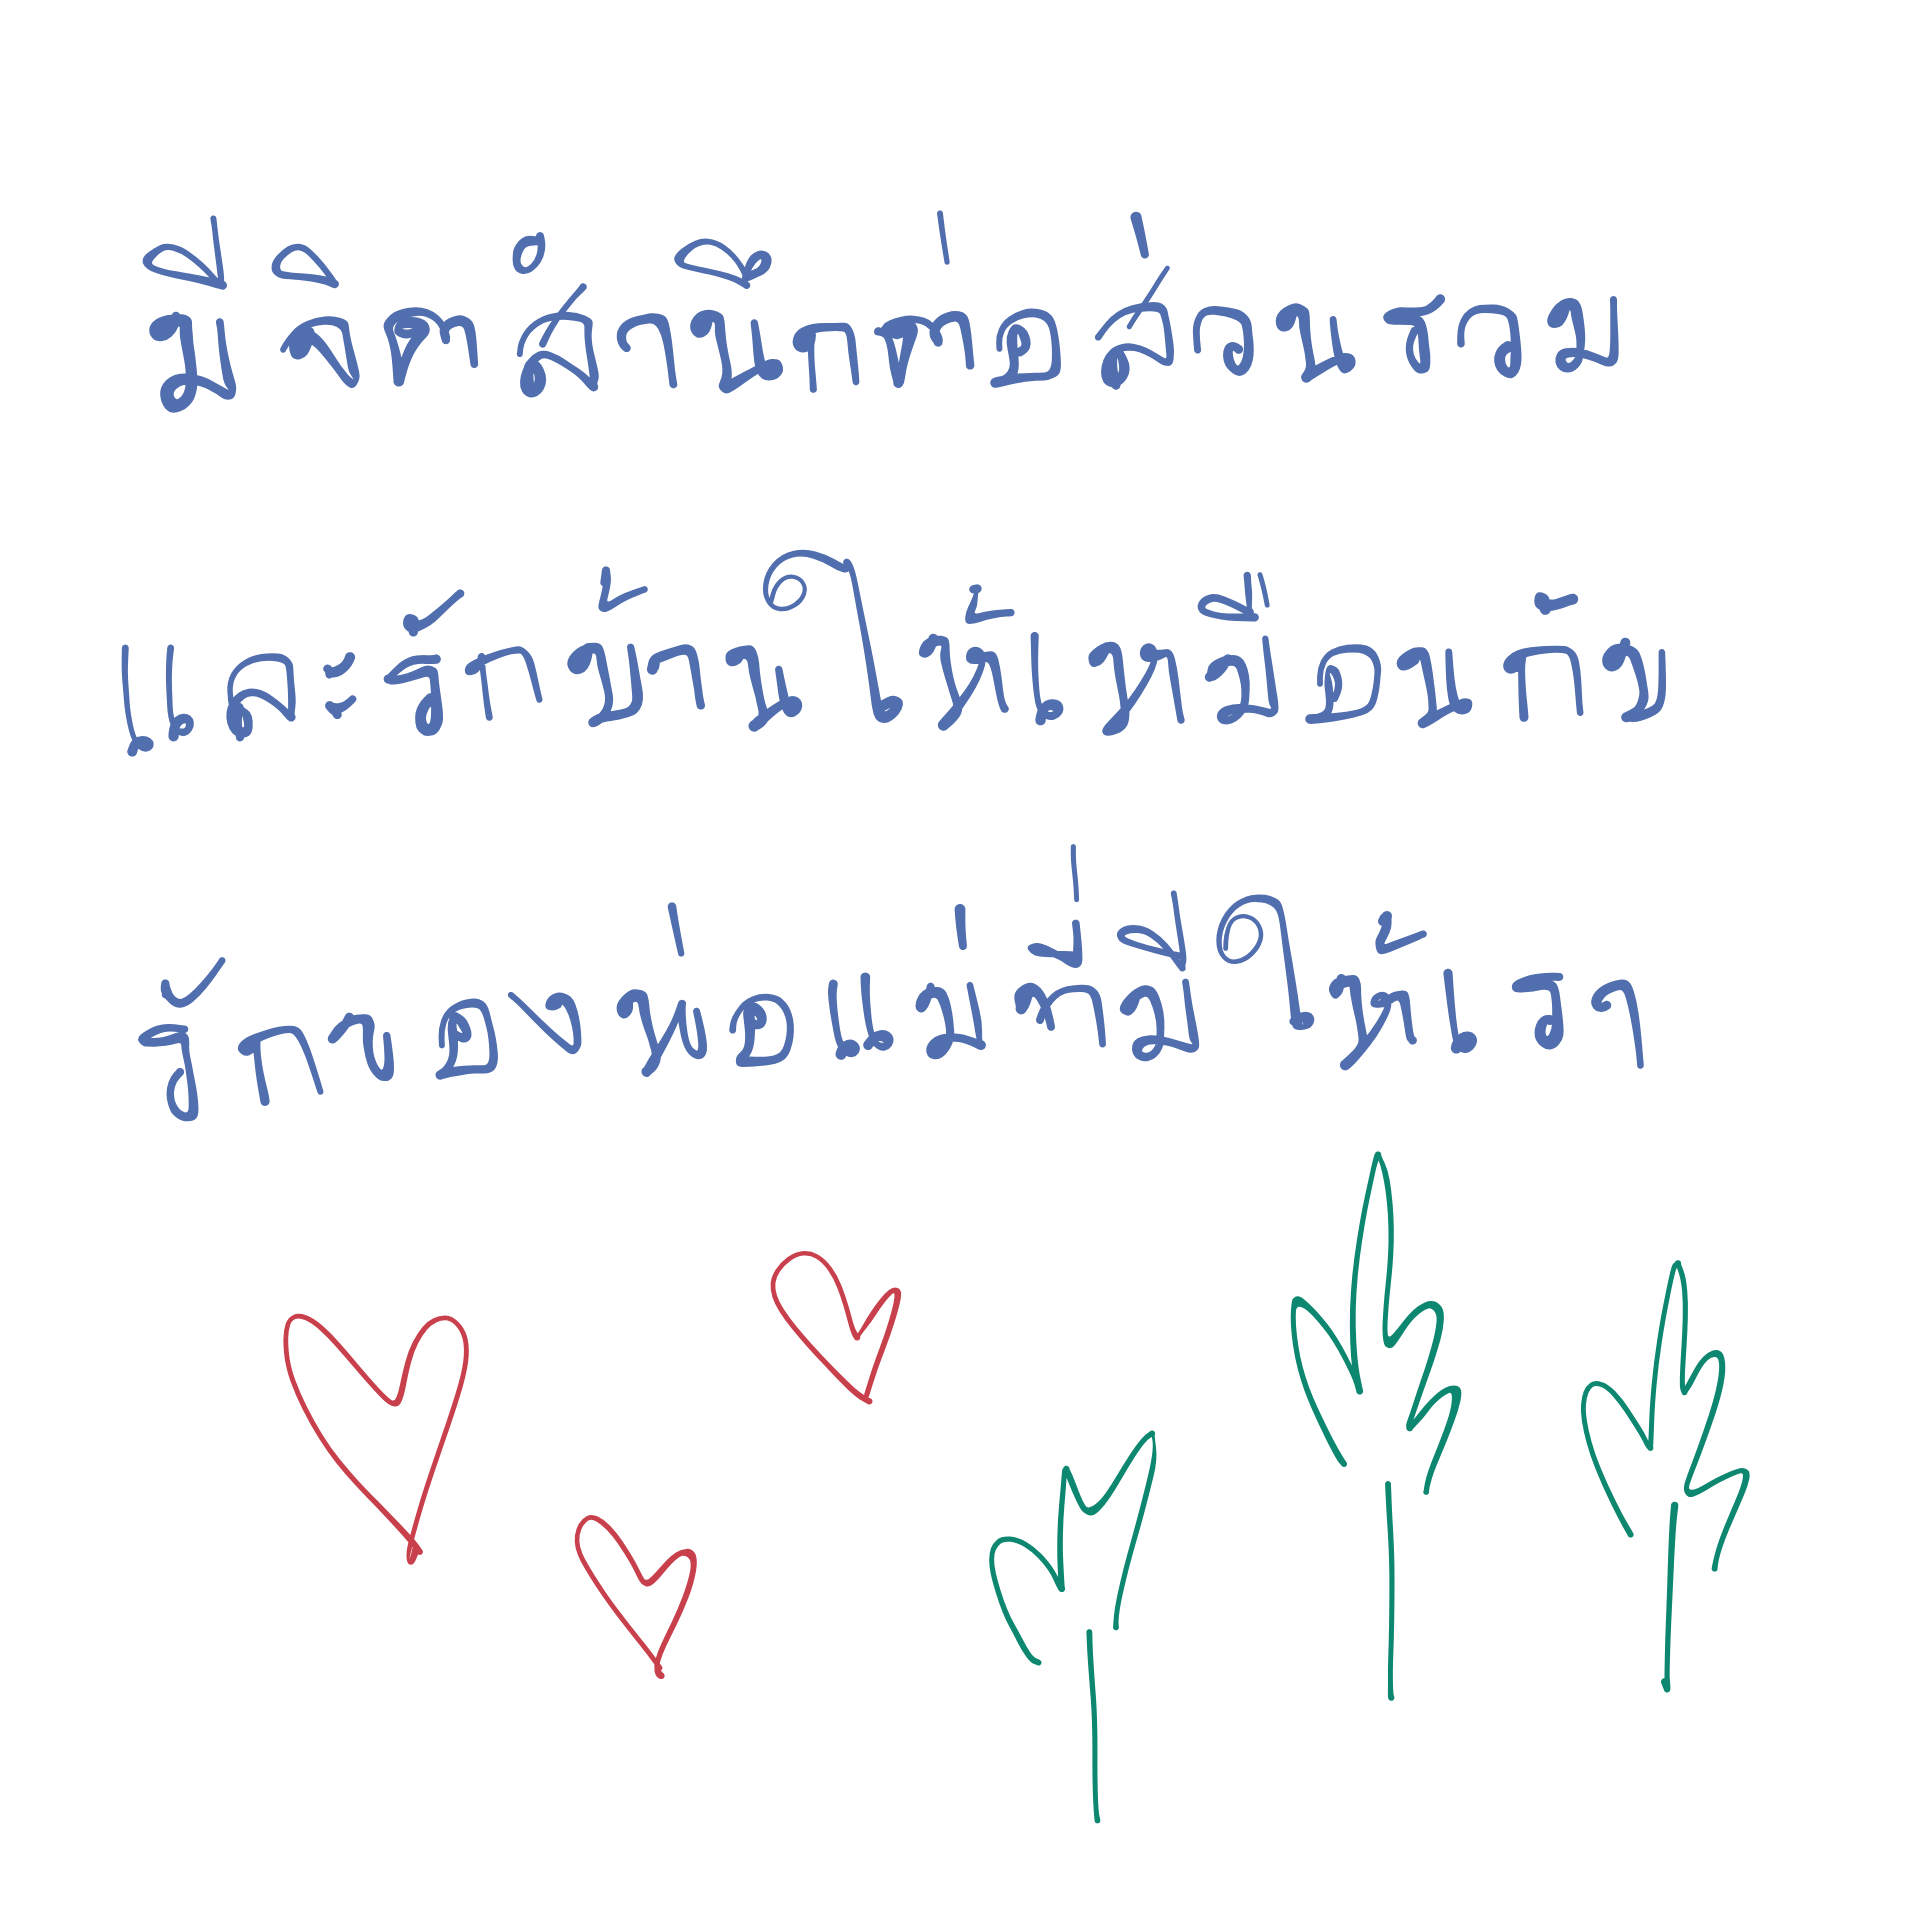 มีจิตสำนึกต่อส่วนรวม
และรักบ้านให้เหมือนกับ
รักของพ่อแม่ที่มีให้เรา